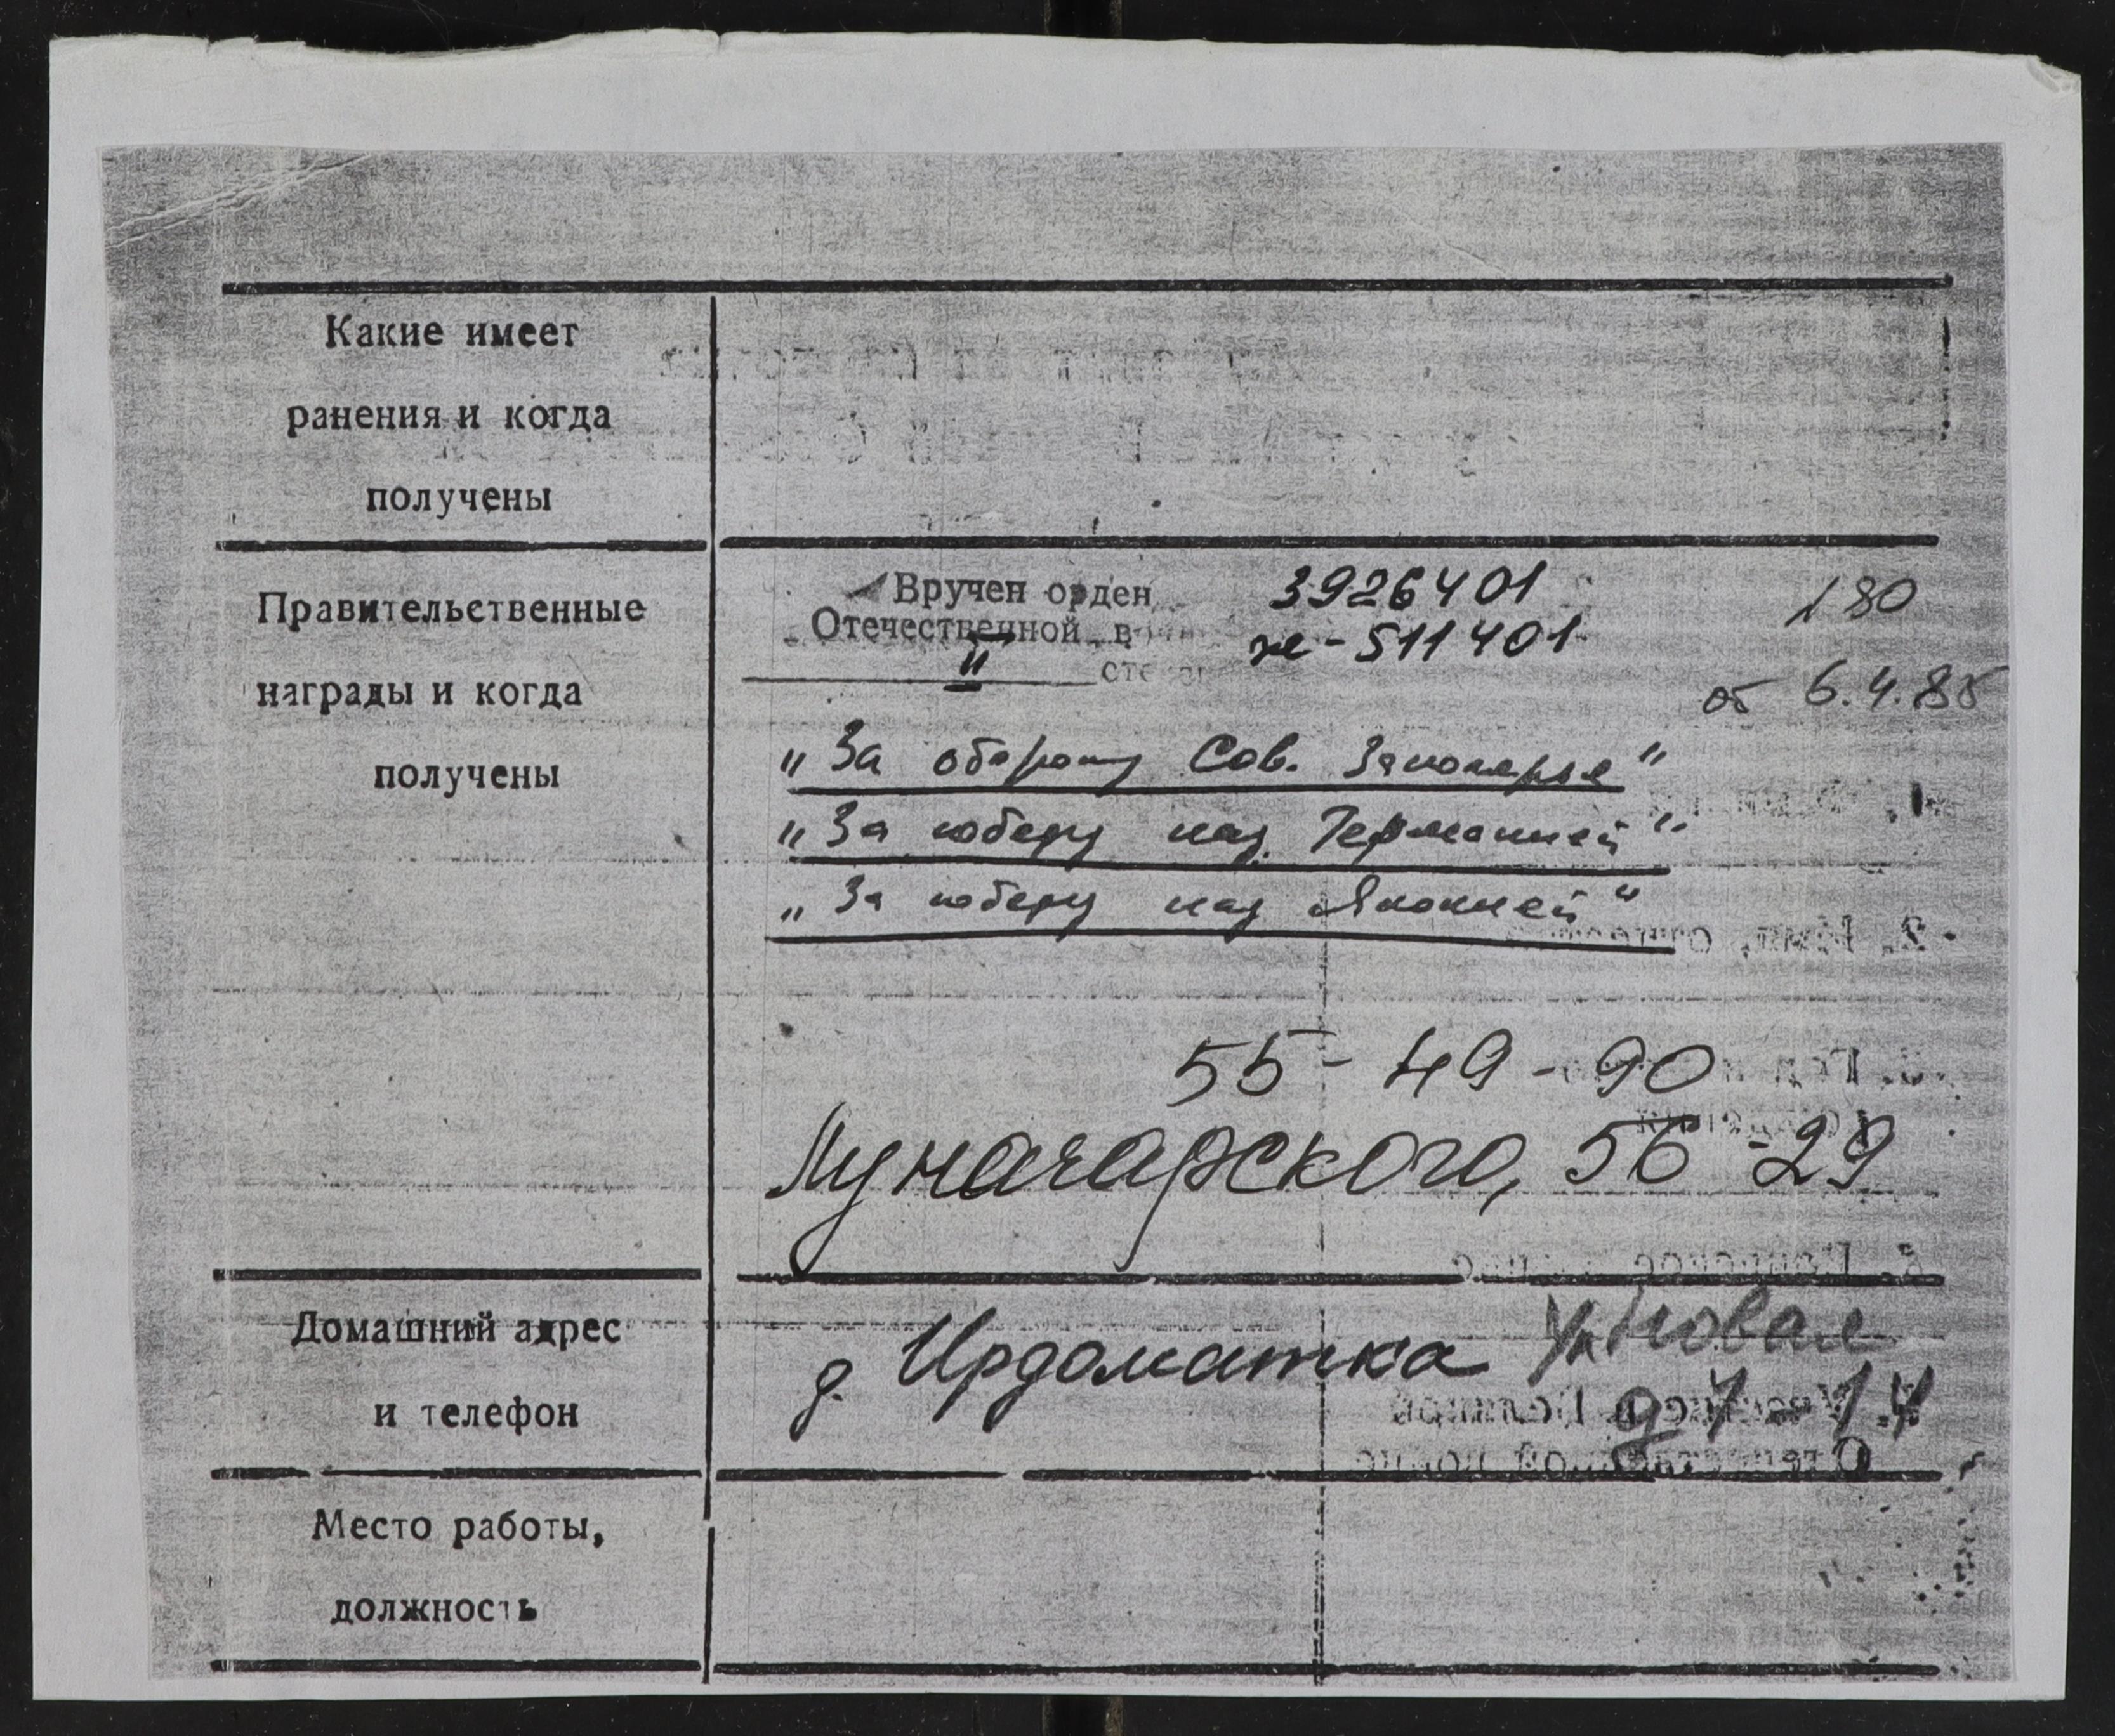 Какие имеет
ранения и когда
получены
Правительственные
награды и когда
получены
Вручен орден 3926401 180
Отечественной в ж-511401
II сте
об 6.4.85
„За оборону Сов. Заполярья“
„За победу над Германией“
„За победу над Японией“
55-49-90
Луначарского, 56-29
Домашний адрес
и телефон
д. Ирдоматка ул Новая
д 7-14
Место работы,
должность